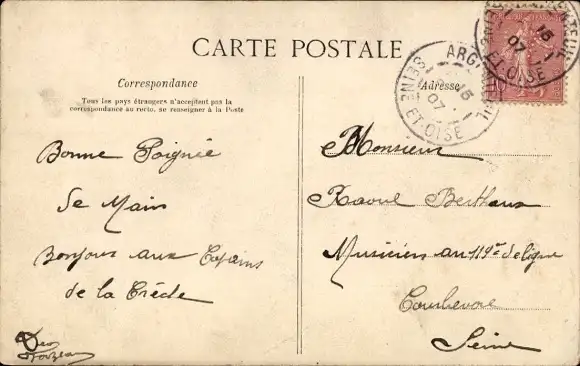 CARTE POSTALE
Correspondance
Tous les pays étrangers n'acceptent pas la
correspondance au recto, se renseigner à la Poste
Adresse
ARG
SEINE ET OISE
15
07
Bonne Poignée
De Main
Bonjour aux Copains
de la Crède
Monsieur
Raoul Berthaux
Musicien au 119e de ligne
Courbevoie
Seine